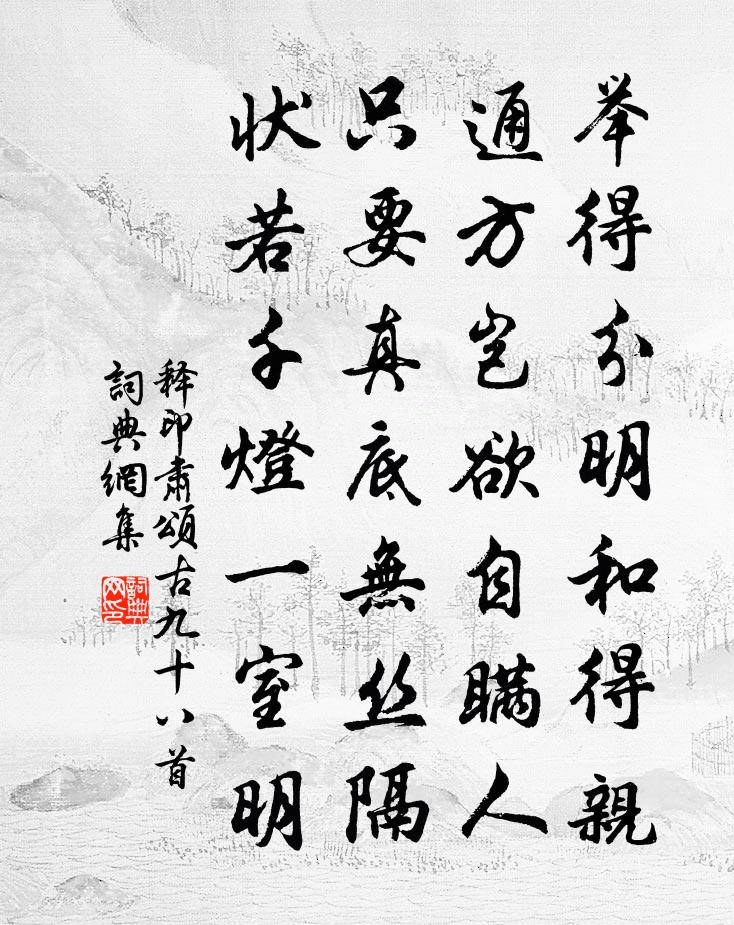 举得分明和得親
通方岂欲自瞞人
只要真底無丝隔
状若千燈一室明
释印肃頌古九十八首
詞典網集
詞典网印